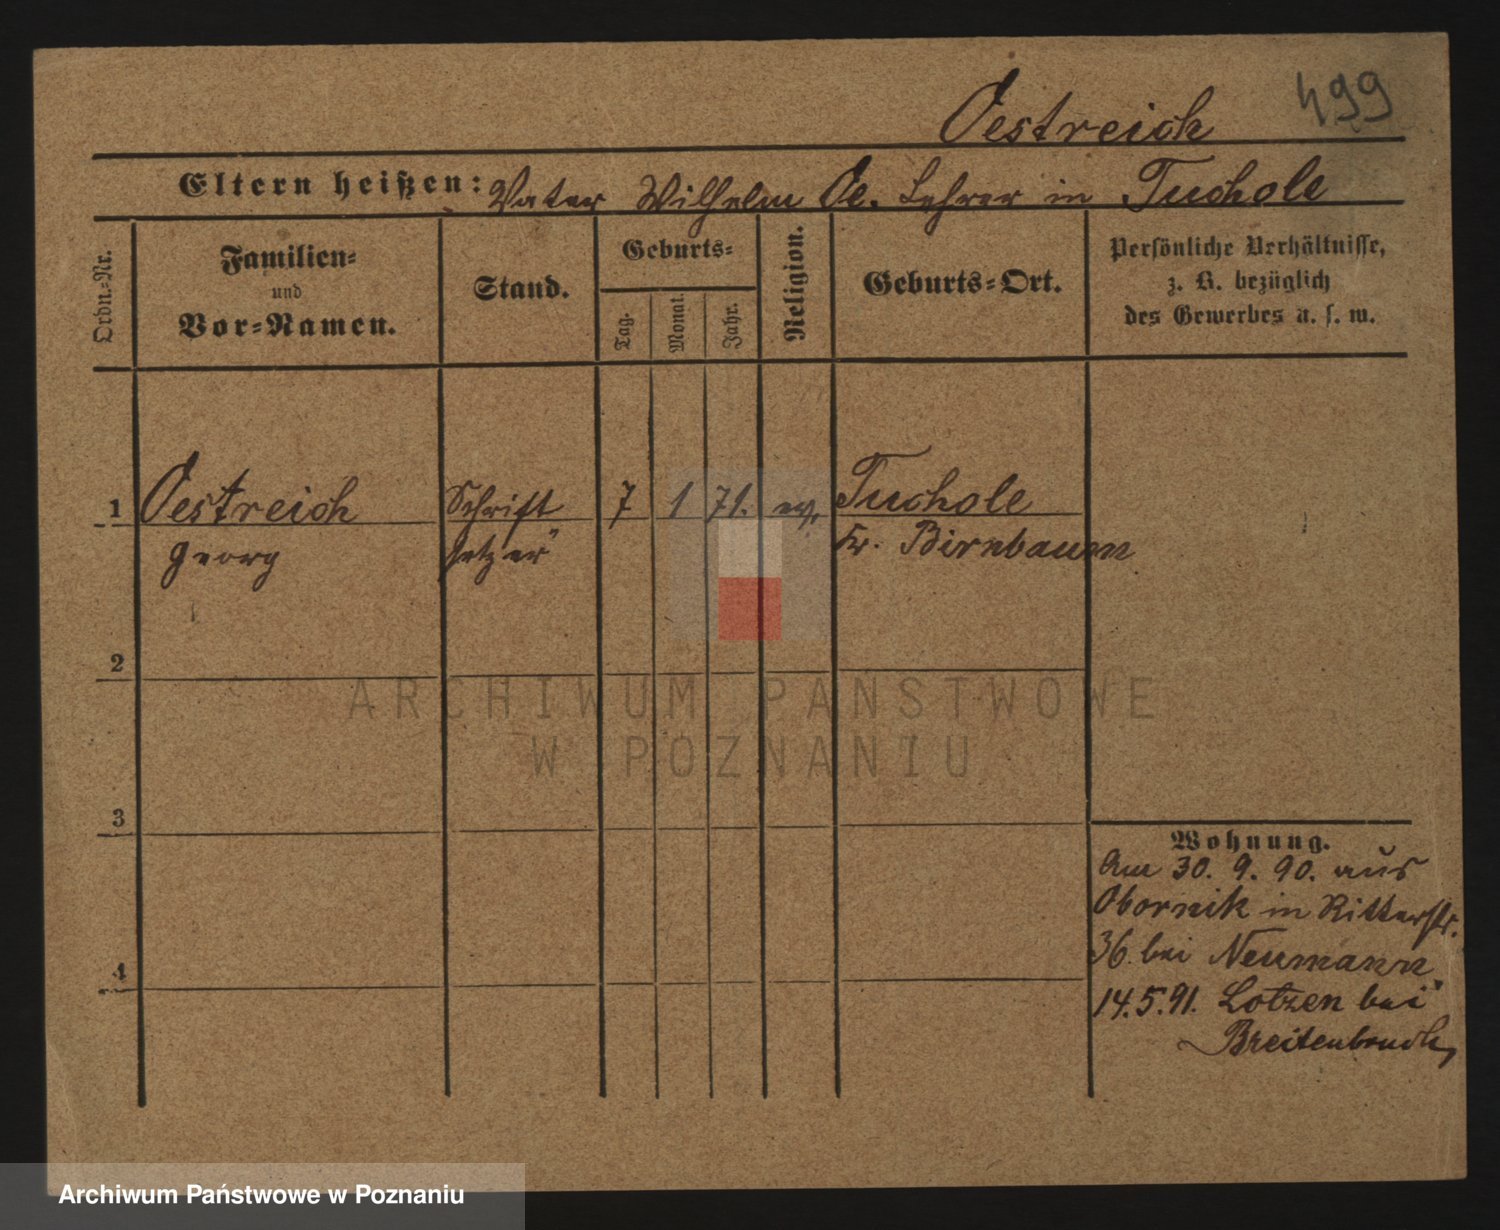 499
Oestreich
Eltern heißen: Vater Wilhelm Oe. Lehrer in Tuchole
Ordn.-Nr.
Familien-
und
Vor-Namen.
Stand.
Geburts-
Tag.
Monat.
Jahr.
Religion.
Geburts-Ort.
Persönliche Verhältnisse,
z. B. bezüglich
des Gewerbes u. s. w.
1 Oestreich Schrift 7 1 71. ev. Tuchole
Georg setzer Kr. Birnbaum
2
3
4
Wohnung.
Am 30. 9. 90. aus
Obornik in Ritterstr.
36. bei Neumann
14.5.91. Lotzen bei
Breitenbruch,
ARCHIWUM PAŃSTWOWE
W POZNANIU
Archiwum Państwowe w Poznaniu